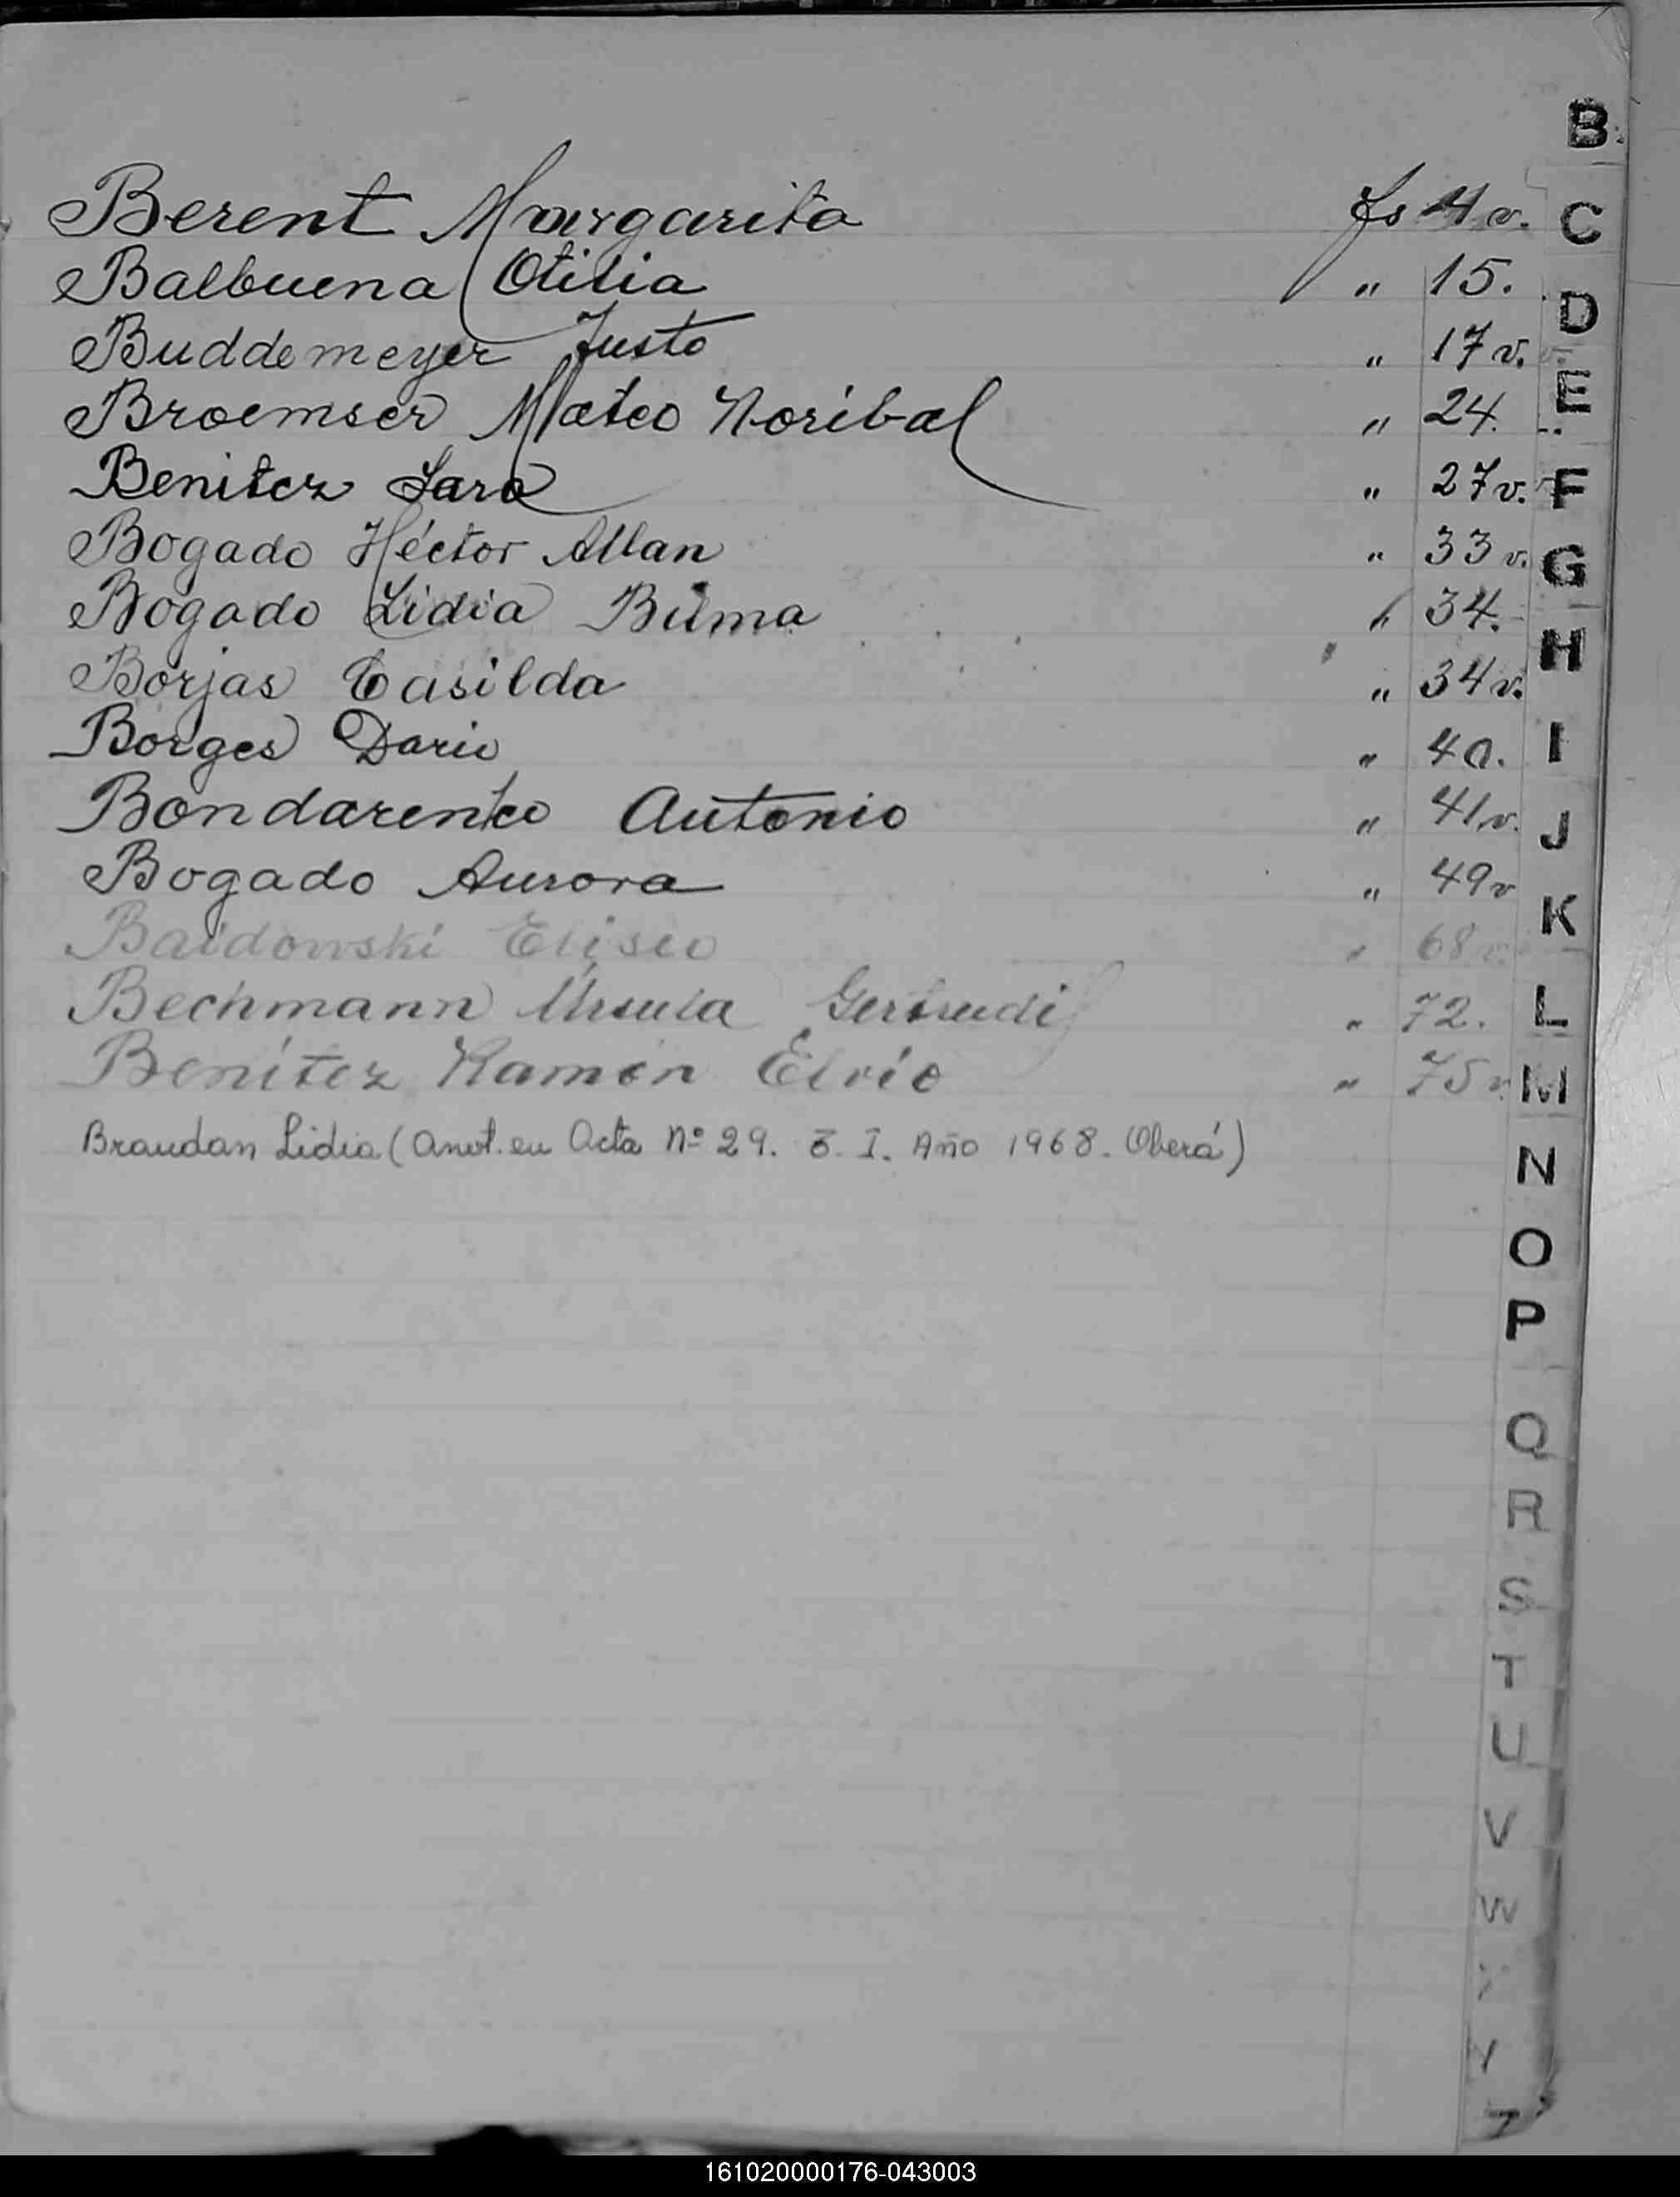 B
Berent Margarita fs 4 v.
Balbuena Otilia " 15.
Buddemeyer Justo " 17 v.
Broemser Mateo Noribal " 24.
Benitez Sara " 27 v.
Bogado Héctor Allan " 33 v.
Bogado Lidia " 34.
Borjas Casilda " 34 v.
Borges Dario " 40.
Bondarenko Antonio " 41 v.
Bogado Aurora " 49 v
Baidowski Eliseo " 68 v.
Bechmann Ursula Gertrudi " 72.
Benítez Ramón Elvio " 75 v.
Braudan Lidia (Anot. en Acta Nº 29. I. Año 1968. Oberá)
C
D
E
F
G
H
I
J
K
L
M
N
O
P
Q
R
S
T
U
V
W
Y
Z
161020000176-043003